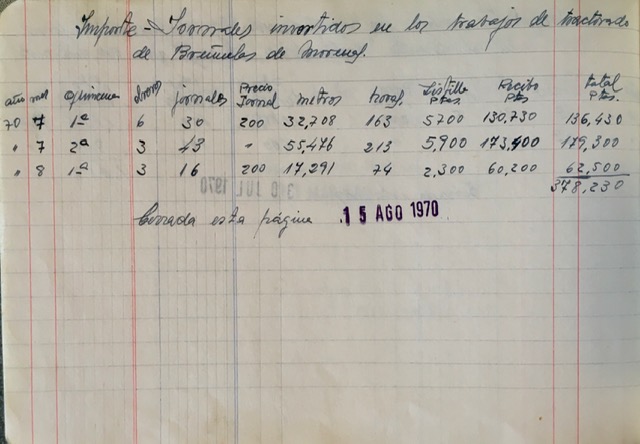 Importe - Jornales invertidos en los trabajos de tractorado
de Breñuelas de Morenas.
año mes Quincena Obreros jornales Precio Jornal metros horas Listilla Ptas. Recibo Pts total Ptas.
70 7 1ª 6 30 200 32,708 163 5700 130,730 136,430
" 7 2ª 3 43 " 55,476 213 5,900 173,400 179,300
" 8 1ª 3 16 200 17,291 74 2,300 60,200 62,500
378,230
Cerrada esta página 15 AGO 1970